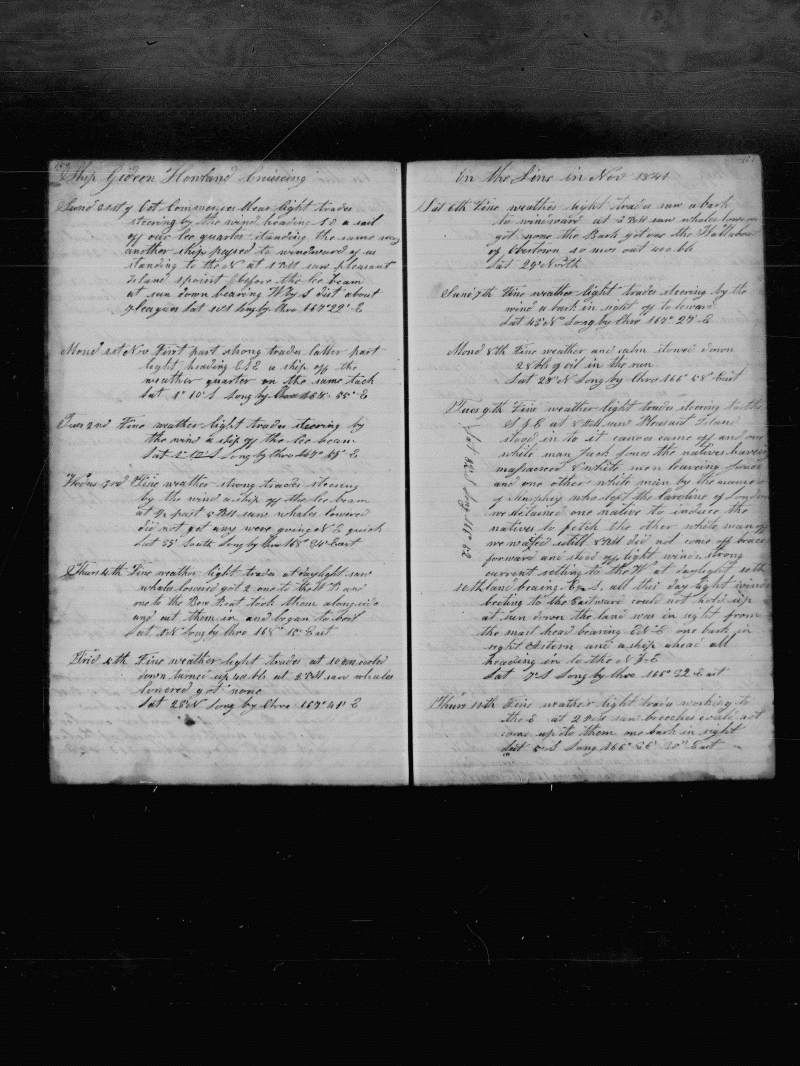 Ship Gideon Howland Cruising
Sund 31st of Oct Commences clear light trades
steering by the wind heading S E a sail
off our lee quarter standing the same way
another ship passed to windward of us
standing to the N at 1 PM saw pleasant
island 1 point before the lee beam
at sun down bearing W by S dist about
7 leagues Lat 10 S Long by Chro 167° 22' E
Mond 1st Nov First part strong trades latter part
light heading ESE a ship off the
weather quarter on the same tack
Lat 1° 10' S Long by Chro 55' E
Tues 2nd Fine weather light trades steering by
the wind a ship off the lee beam
Lat S Long by Chro 167° E
Wedns 3rd Fine weather strong trades steering
by the wind a ship off the lee beam
at ½ past 5 PM saw whales lowered
did not get any were going N E quick
Lat 55' South Long by Chro 168° 24' East
Thurs 4th Fine weather light trades at daylight saw
whales lowered got 2 one to the W B and
one to the Bow Boat took them alongside
and cut them in and began to boil
Lat N Long by Chro 168° 10' East
Frid 5th Fine weather light trades at 10 AM cooled
down turned up 40 bb at 5 PM saw whales
lowered got none
Lat 28' N Long by Chro 167° 41' E
On the Line in Nov 1841
Sat 6th Fine weather light trades saw a bark
to windward at 2 PM saw whales lowered
got none the Bark got one the
of 10 mos out 400 bb
Lat 29' North
Sund 7th Fine weather light trades steering by the
wind a bark in sight off to leward
Lat 45' N Long by Chro 167° 27' E
Mond 8th Fine weather and calm stowed down
28 bb of oil in the run
Lat 29' N Long by Chro 166° 58' East
Tues 9th Fine weather light trades steering to the
S S E at 8 AM saw Pleasant Island
stood in to it canoes came off and one
white man Jack Jones the natives having
massacred 8 white men leaving Jones
and one other white man by the name
of Murphey who left the Caroline of London
we detained one native to induce the
natives to fetch the other white man off
we waited untill 8 PM did not come off braced
forward and stood off light winds strong
current setting to the W at daylight 10th
Lat 32' S Long 166° 52
10th land bearing E by S, all this day light winds
beating to the Eastward could not hold up
at sun down the land was in sight from
the mast head bearing ENE one bark in
sight Astern and a ship ahead all
heading in to the N & E
Lat 7' S Long by Chro 166° 32 East
Thurs 11th Fine weather light trades working to
the E at 2 PM saw breeches could not
come up to them one bark in sight
Lat 5' S Long 166° 26' 30" East